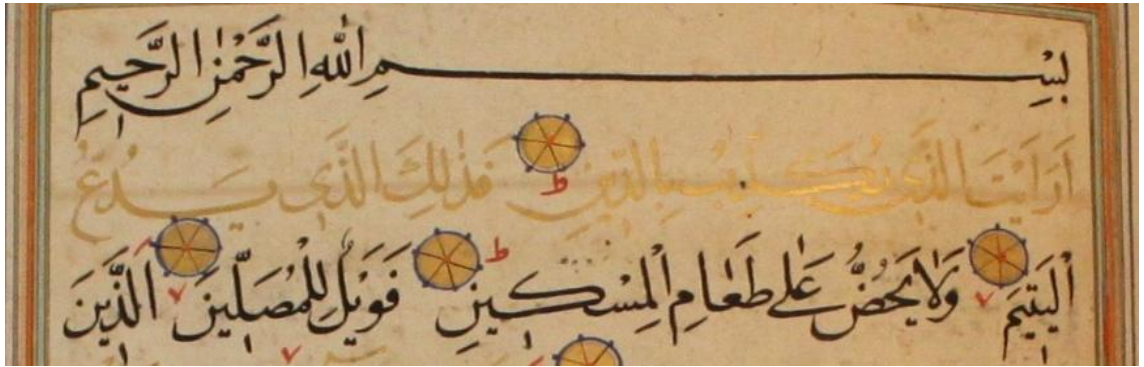 بِسْمِ اللهِ الرَّحْمٰنِ الرَّحِيمِ
اَرَاَيْتَ الَّذِي يُكَذِّبُ بِالدِّينِ ط فَذٰلِكَ الَّذِي يَدُعُّ
الْيَتِيمَ وَلَا يَحُضُّ عَلٰى طَعَامِ الْمِسْكِينِ ط فَوَيْلٌ لِلْمُصَلِّينَ اَلَّذِينَ